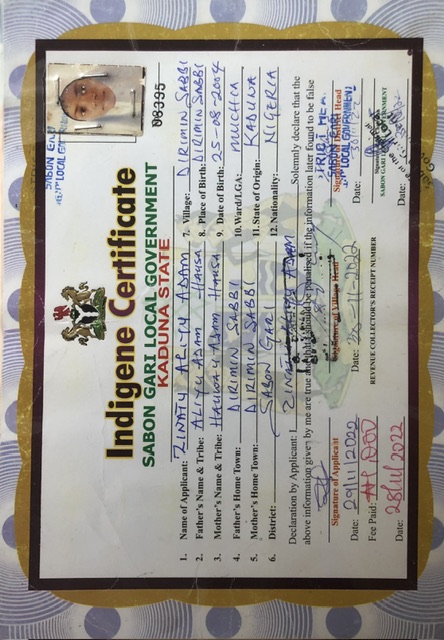 08395
SABON GARI
LOCAL GOVERNMENT
Indigene Certificate
SABON GARI LOCAL GOVERNMENT
KADUNA STATE
1. Name of Applicant: ALIYU ADAM
2. Father's Name & Tribe: ALIYU ADAM - HAUSA
3. Mother's Name & Tribe: ADAM HAUSA
4. Father's Home Town: DIRIMIN SABBI
5. Mother's Home Town: DIRIMIN SABBI
6. District: SABON GARI
7. Village: DIRIMIN SABBI
8. Place of Birth: DIRIMIN SABBI
9. Date of Birth: 25-08-2004
10. Ward/LGA: MUCHIA
11. State of Origin: KADUNA
12. Nationality: NIGERIA
Declaration by Applicant: I ADAM Solemnly declare that the
above information given by me are true and should be penalised if the information later found to be false
Signature of Applicant
Signature of Village Head
Signature of District Head
SABON GARI
LOCAL GOVERNMENT
SABON GARI LOCAL GOVERNMENT
Date: 29/11/2022
Date: 28-11-2022
Date:
Fee Paid:
REVENUE COLLECTOR'S RECEIPT NUMBER
Date: 28/11/2022